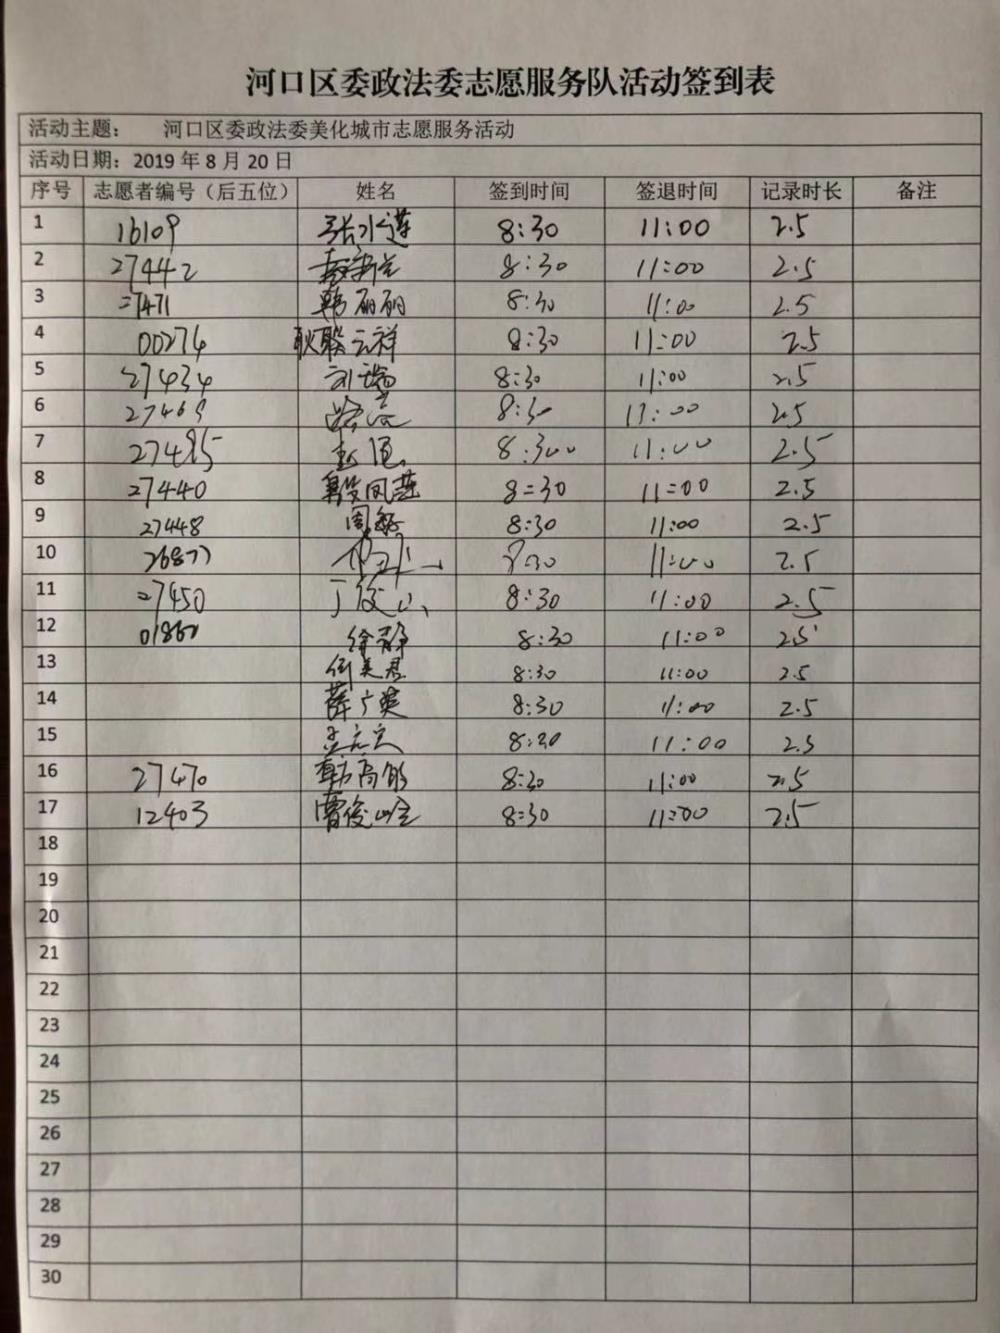 河口区委政法委志愿服务队活动签到表
活动主题： 河口区委政法委美化城市志愿服务活动
活动日期：2019 年 8 月 20 日
序号 志愿者编号（后五位） 姓名 签到时间 签退时间 记录时长 备注
1 16109 张水莲 8:30 11:00 2.5
2 27442 8:30 11:00 2.5
3 27471 韩丽丽 8:30 11:00 2.5
4 00274 耿聚云祥 8:30 11:00 2.5
5 27434 刘瑞 8:30 11:00 2.5
6 27469 8:30 11:00 2.5
7 27485 8:30 11:00 2.5
8 27440 殷凤莲 8:30 11:00 2.5
9 27448 周 8:30 11:00 2.5
10 26877 8:30 11:00 2.5
11 27450 丁 8:30 11:00 2.5
12 徐静 8:30 11:00 2.5
13 何美君 8:30 11:00 2.5
14 薛广英 8:30 11:00 2.5
15 8:30 11:00 2.5
16 27470 8:30 11:00 2.5
17 12403 曹俊峰 8:30 11:00 2.5
18
19
20
21
22
23
24
25
26
27
28
29
30